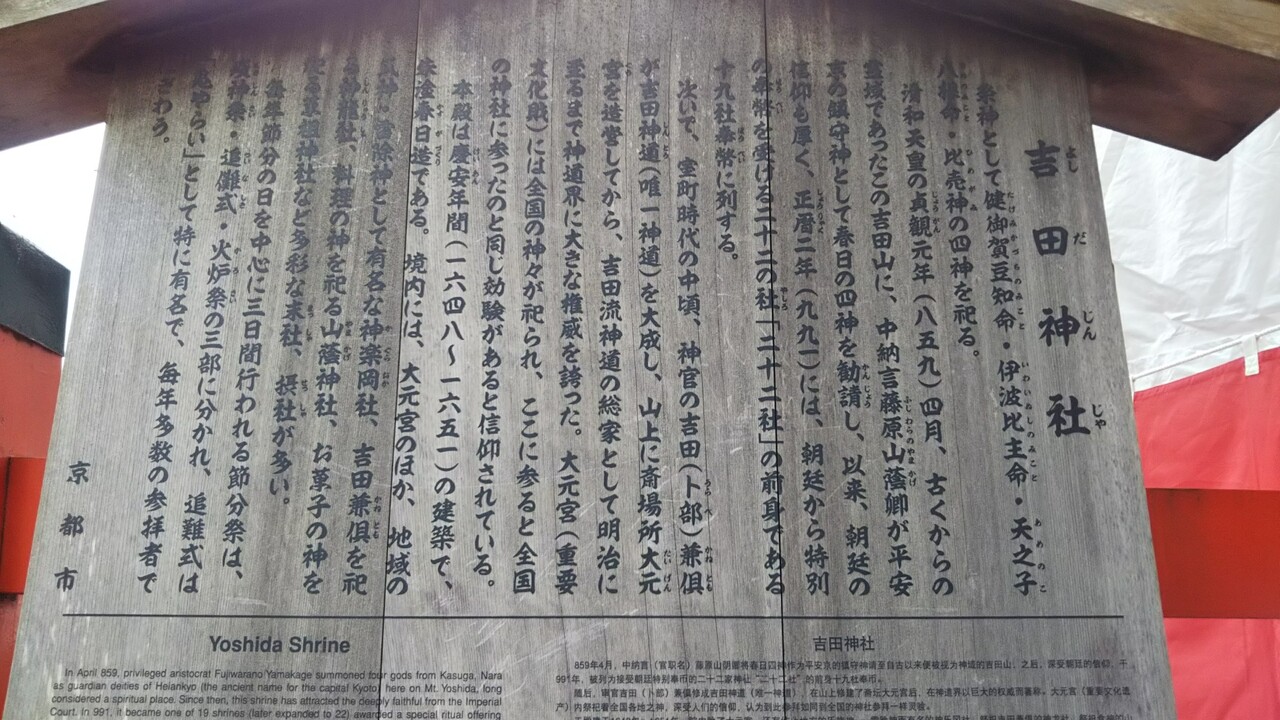 吉田神社
祭神として健御賀豆知命・伊波比主命・天之子
八根命・比売神の四神を祀る。
清和天皇の貞観元年（八五九）四月、古くからの
霊域であったこの吉田山に、中納言藤原山蔭卿が平安
京の鎮守神として春日の四神を勧請し、以来、朝廷の
信仰も厚く、正暦二年（九九一）には、朝廷から特別
の奉幣を受ける二十二の社「二十二社」の前身である
十九社奉幣に列する。
次いで、室町時代の中頃、神官の吉田（卜部）兼倶
が吉田神道（唯一神道）を大成し、山上に斎場所大元
宮を造営してから、吉田流神道の総家として明治に
至るまで神道界に大きな権威を誇った。大元宮（重要
文化財）には全国の神々が祀られ、ここに参ると全国
の神社に参ったのと同じ効験があると信仰されている。
本殿は慶安年間（一六四八〜一六五一）の建築で、
春日造である。境内には、大元宮のほか、地域の
神・除神として有名な神楽岡社、吉田兼倶を祀
神龍社、料理の神を祀る山蔭神社、お菓子の神を
菓祖神社など多彩な末社、摂社が多い。
毎年節分の日を中心に三日間行われる節分祭は、
神祭・追儺式・火炉祭の三部に分かれ、追難式は
やらい」として特に有名で、毎年多数の参拝者で
ぎわう。
京都市
Yoshida Shrine
In April 859, privileged aristocrat Fujiwarano Yamakage summoned four gods from Kasuga, Nara
as guardian deities of Heiankyo (the ancient name for the capital Kyoto) here on Mt. Yoshida, long
considered a spiritual place. Since then, this shrine has attracted the deeply faithful from the Imperial
Court. In 991, it became one of 19 shrines (later expanded to 22) awarded a special ritual offering
吉田神社
859年4月，中纳言（官职名）藤原山阴卿将春日四神作为平安京的镇守神请至自古以来便被视为神域的吉田山。之后，深受朝廷的信仰，于
991年，被列为接受朝廷特别奉币的二十二家神社"二十二社"的前身十九社奉币。
随后，神官吉田（卜部）兼俱修成吉田神道（唯一神道），在山上修建了斋坛大元宫后，在神道界以巨大的权威而著称。大元宫（重要文化遗
产）内祭祀着全国各地之神，深受人们的信仰，认为到此参拜如同到全国的神社参拜一样灵验。